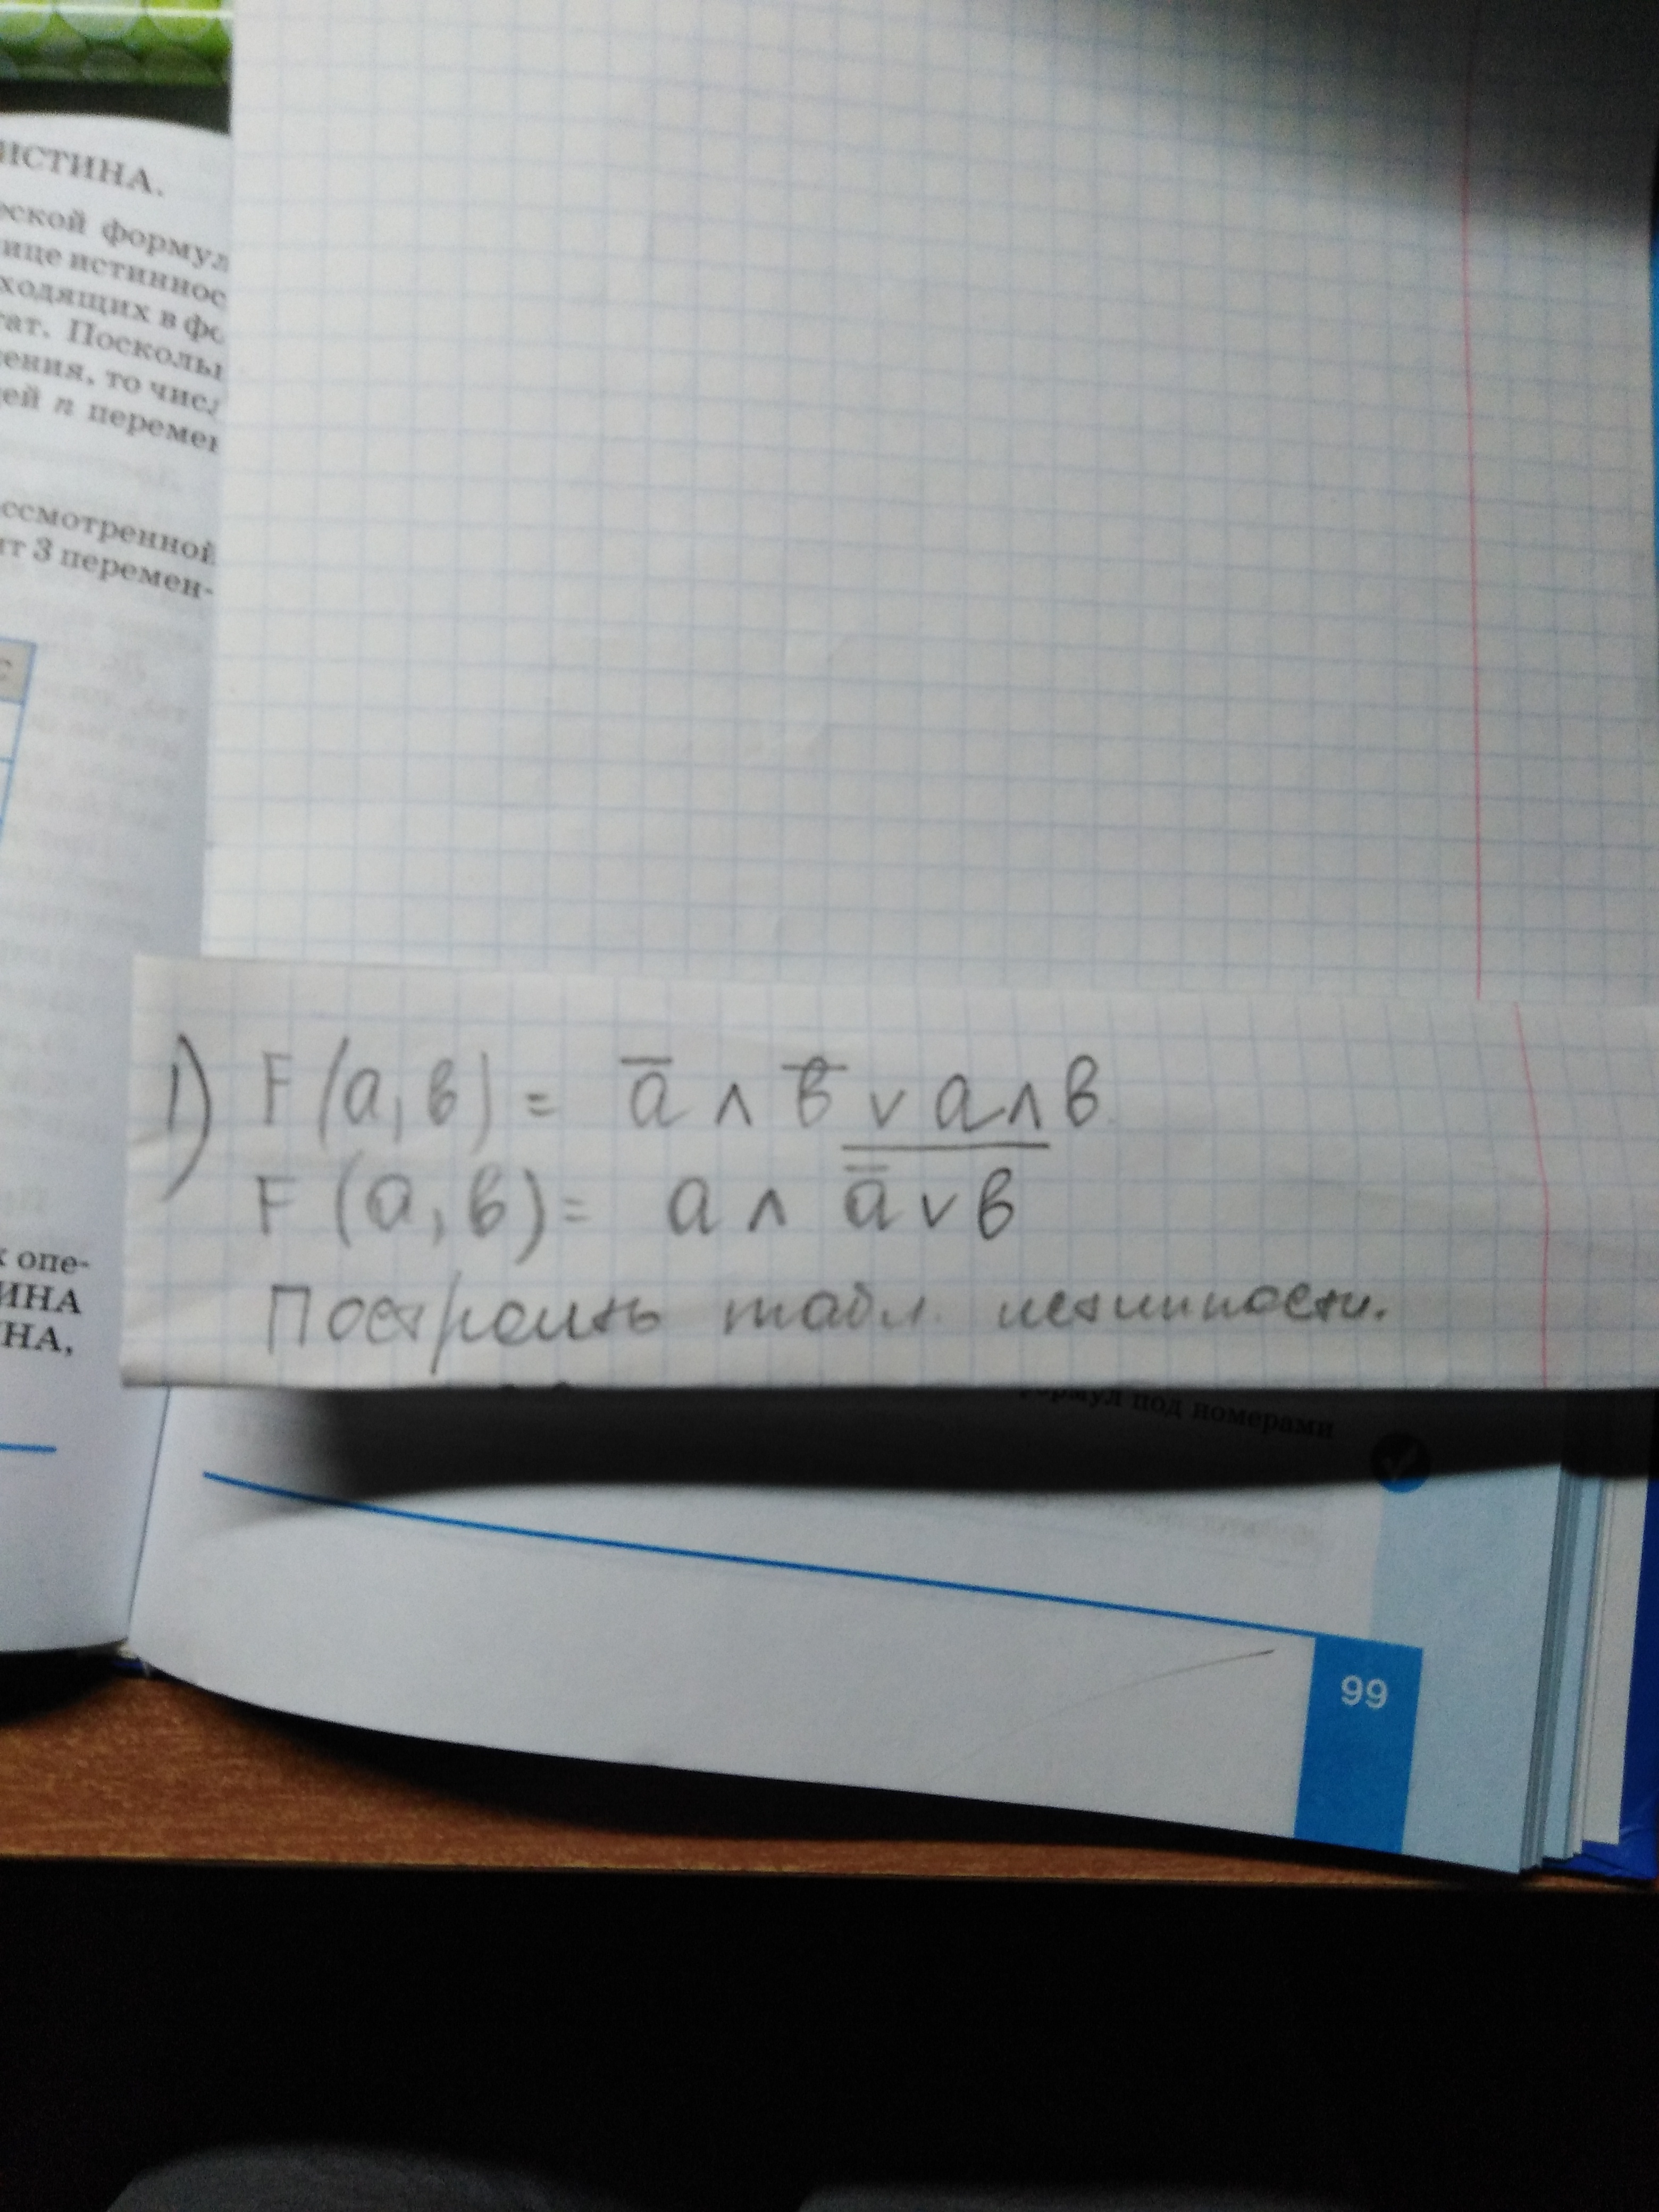 ИСТИНА.
еской формул
ице истиннос
ходящих в фо
ат. Посколь
ения, то чис
ей n перемен
ссмотренной
ит 3 перемен-
с
1) F(a,в) = a̅ ∧ в̅ ∨ a∧в
F(a,в) = a ∧ \overline{a̅∨в}
Построить табл. истинности.
х опе-
ИНА
НА,
формул под номерами
99